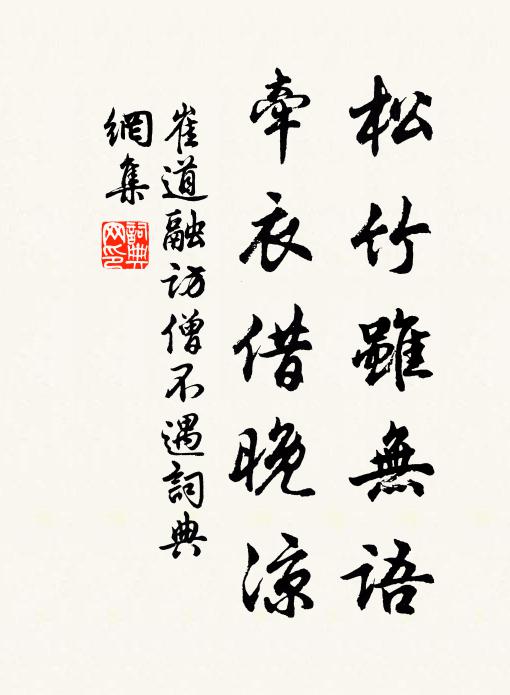 松竹雖無語
牽衣借晚涼
崔道融訪僧不遇詞典
網集
詞典
网印